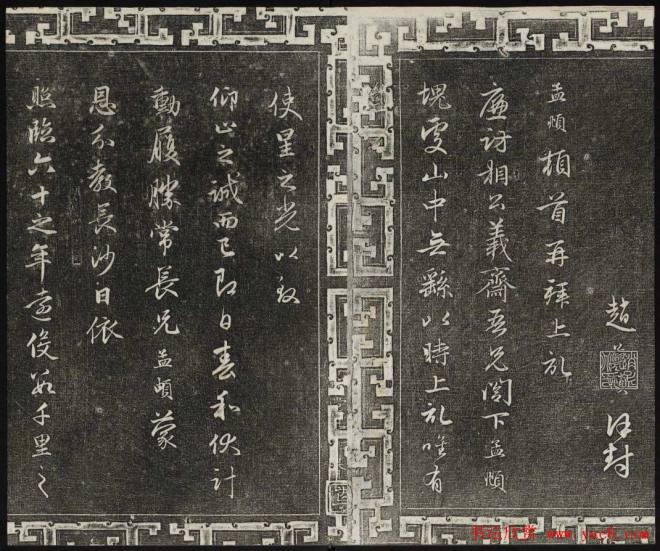 趙 謹封
孟頫頓首再拜上記
廉訪相公義齋吾兄閣下孟頫
塊處山中無繇以時上記唯有
使星之光以致
仰止之誠而已即日春和伏計
動履勝常長兄孟頫蒙
恩分教長沙日依
照臨六十之年遠役數千里之
书法欣赏 www.yac8.com